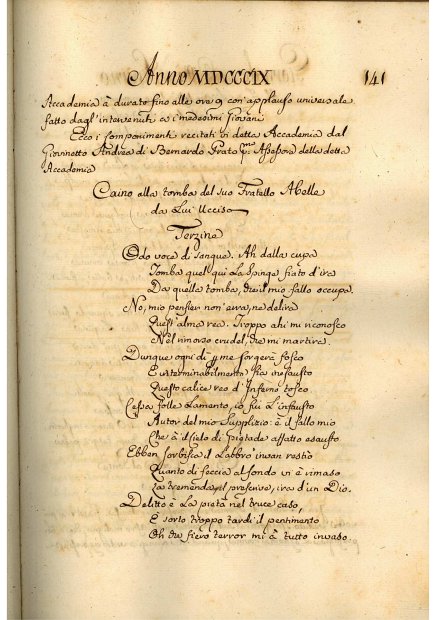 Anno MDCCCIX 141
Accademia à durato fino alle ore 9 con applauso universale
fatto dagl' intervenuti a i medesimi Giovani
Ecco i componimenti recitati in detta Accademia dal
Giovinetto Andrea di Bernardo Prato pmo Assessore della detta
Accademia
Caino alla tomba del suo Fratello Abelle
da Lui Ucciso
Terzine
Odo voce di sangue. Ah dalla cupa
Tomba quel qui la spinge fiato d'ira
Da quella tomba, che il mio fallo occupa.
No, mio pensier non erra, ne delira
Quest' alma rea. Troppo ahi mi riconosco
Nel rimorso crudel, che mi martira.
Dunque ogni dì per me sorgerà fosco
E interminabilmente fia infausto
Questo calice reo d'Inferno tosco
Cessa folle lamento, io fui l'infausto
Autor del mio supplizio: è il fallo mio
Che à il Cielo di pietade affatto esausto
Ebben sorbisca il labbro invan restio
Quanto di feccia al fondo vi è rimaso
La tremenda il prescrive, ira d'un Dio.
Delitto è la pietà nel truce caso,
E sorto troppo tardi il pentimento
Oh che fiero terror mi à tutto invaso